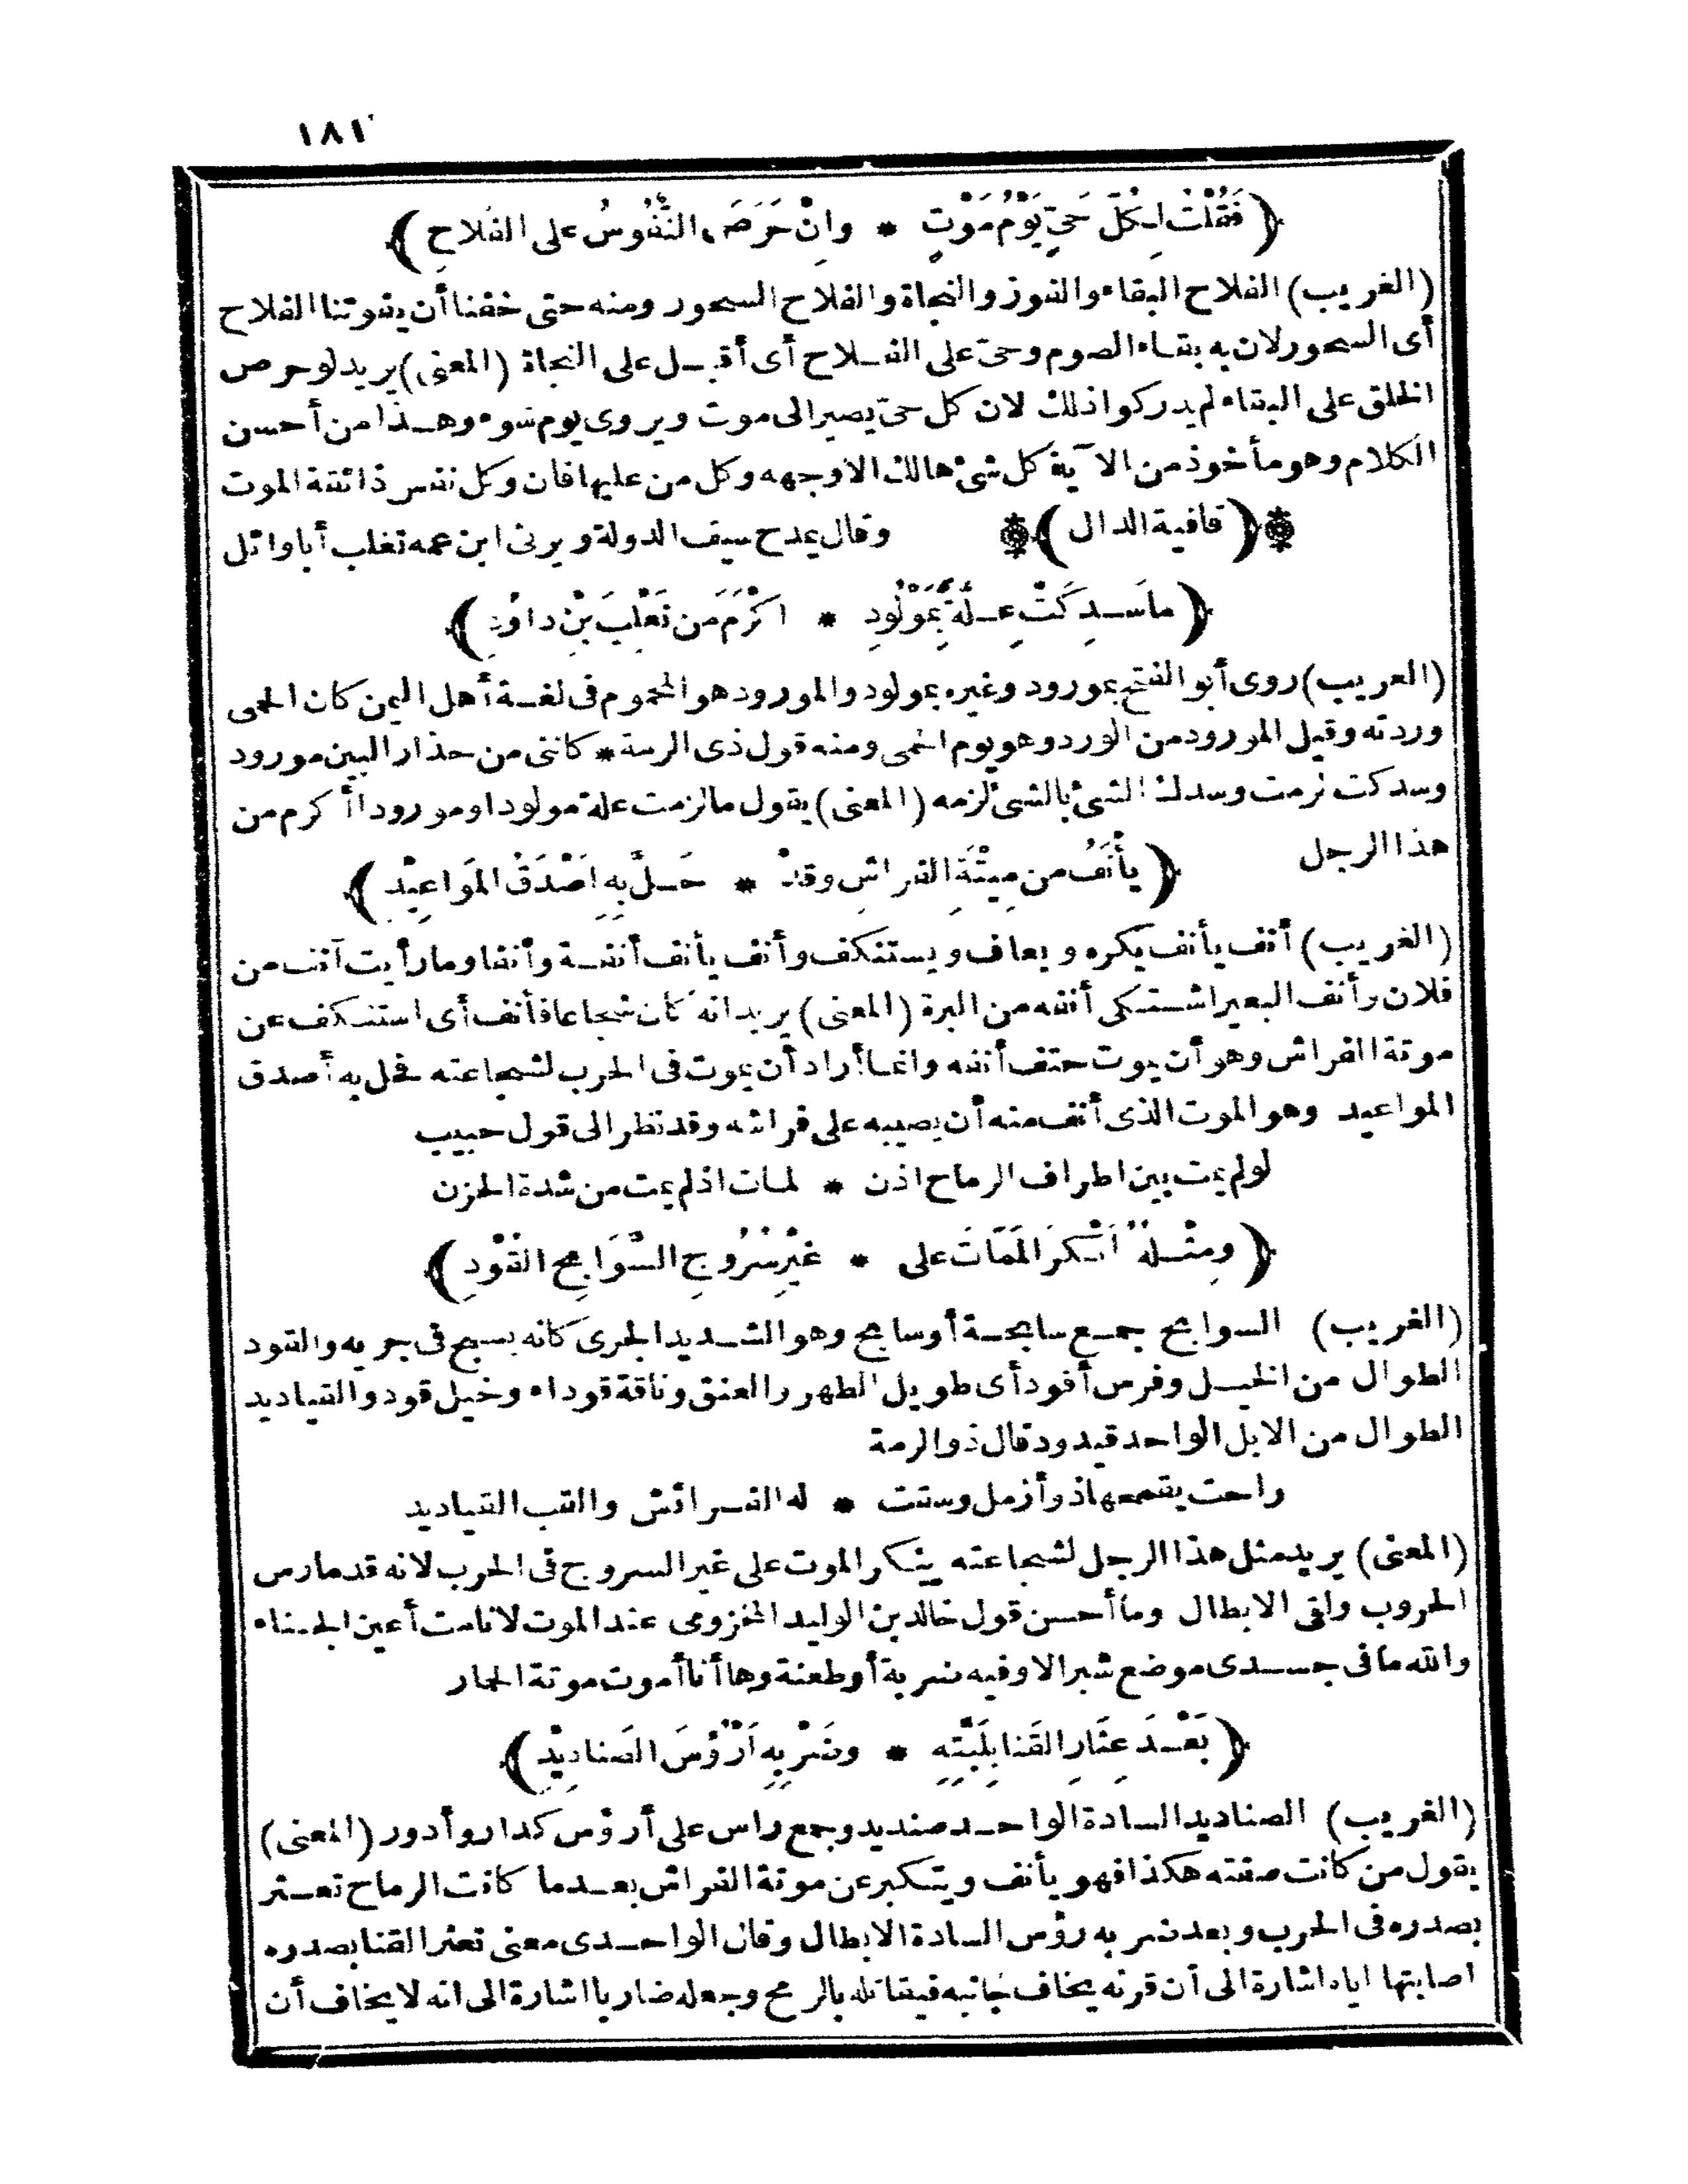 ١٨١
﴿فَقُلْتُ لِكُلِّ حَيٍّ يَوْمُ مَوْتٍ * وإنْ حَرَصَ النُّفُوسُ على الفَلاحِ﴾
(الغريب) الفلاح البقاء والفوز والنجاة والفلاح السحور ومنه حتى خفنا أن يفوتنا الفلاح
أى السحور لان به بقاء الصوم وحىّ على الفلاح أى أقبل على النجاة (المعنى) يريد لو حرص
الخلق على البقاء لم يدركوا ذلك لان كل حىّ يصير الى موت ويروى يوم سوء وهذا من أحسن
الكلام وهو مأخوذ من الآية كل شئ هالك الا وجهه وكل من عليها فان وكل نفس ذائقة الموت
﴿قافية الدال﴾ وقال يمدح سيف الدولة ويرثى ابن عمه تغلب أبا وائل
﴿ما سَدِكَتْ عِلَّةٌ بِمَوْلُودِ * اكْرَمَ مِن تَغْلِبَ بْنِ داوُدِ﴾
(الغريب) روى أبو الفتح بمورود وغيره بمولود والمورود هو المحموم فى لغة أهل اليمن كان الحمى
وردته وقيل المورود من الورد وهو يوم الحمى ومنه قول ذى الرمة * كاننى من حذار البين مورود
وسدكت لزمت وسدك الشئ بالشئ لزمه (المعنى) يقول ما لزمت علة مولودا ومورودا أكرم من
هذا الرجل ﴿يأنَفُ من مِيتَةِ الفراشِ وقدْ * حَلَّ بِهِ اَصْدَقُ المَواعِيْدِ﴾
(الغريب) أنف يأنف يكره ويعاف ويستنكف وأنف يأنف أنفة وأنفا وما رأيت آنف من
فلان وأنف البعير اشتكى أنفه من البرة (المعنى) يريد انه كان شجاعا فأنف أى استنكف عن
موتة الفراش وهو أن يموت حتف أنفه وانما أراد أن يموت فى الحرب لشجاعته فحل به أصدق
المواعيد وهو الموت الذى أنف منه أن يصيبه على فراشه وقد نظر الى قول حبيب
لو لم يمت بين اطراف الرماح اذن * لمات اذ لم يمت من شدة الحزن
﴿ومِثْلُهُ اَنْكَرَ المَمَاتَ على * غَيْرِ سُرُوجِ السَّوَابِحِ القُوْدِ﴾
(الغريب) السوابح جمع سابحة أو سابح وهو الشديد الجرى كانه يسبح فى جريه والقود
الطوال من الخيل وفرس أقود أى طويل الظهر والعنق وناقة قوداء وخيل قود والقياديد
الطوال من الابل الواحد قيدود قال ذو الرمة
راحت يقحمها ذو أزمل وسقت * له الفرائش والقب القياديد
(المعنى) يريد مثل هذا الرجل لشجاعته ينكر الموت على غير السروج فى الحرب لانه قد مارس
الحروب ولقى الابطال وما أحسن قول خالد بن الوليد المخزومى عند الموت لا نامت أعين الجبناء
والله ما فى جسدى موضع شبر الا وفيه ضربة أو طعنة وها أنا أموت موتة الحمار
﴿بَعْدَ عِثَارِ القَنا بِلَبَّتِهِ * وضَرْبِهِ اَرْؤُسَ الصَناديْدِ﴾
(الغريب) الصناديد السادة الواحد صنديد وجمع راس على أرؤس كدار وأدور (المعنى)
يقول من كانت صفته هكذا فهو يأنف ويتكبر عن موتة الفراش بعد ما كانت الرماح تعثر
بصدره فى الحرب وبعد ضربه رؤس السادة الابطال وقال الواحدى معنى تعثر القنا بصدره
اصابتها اياه اشارة الى أن قرنه يخاف جانبه فيقاتله بالرمح وجعله ضاربا اشارة الى انه لا يخاف أن